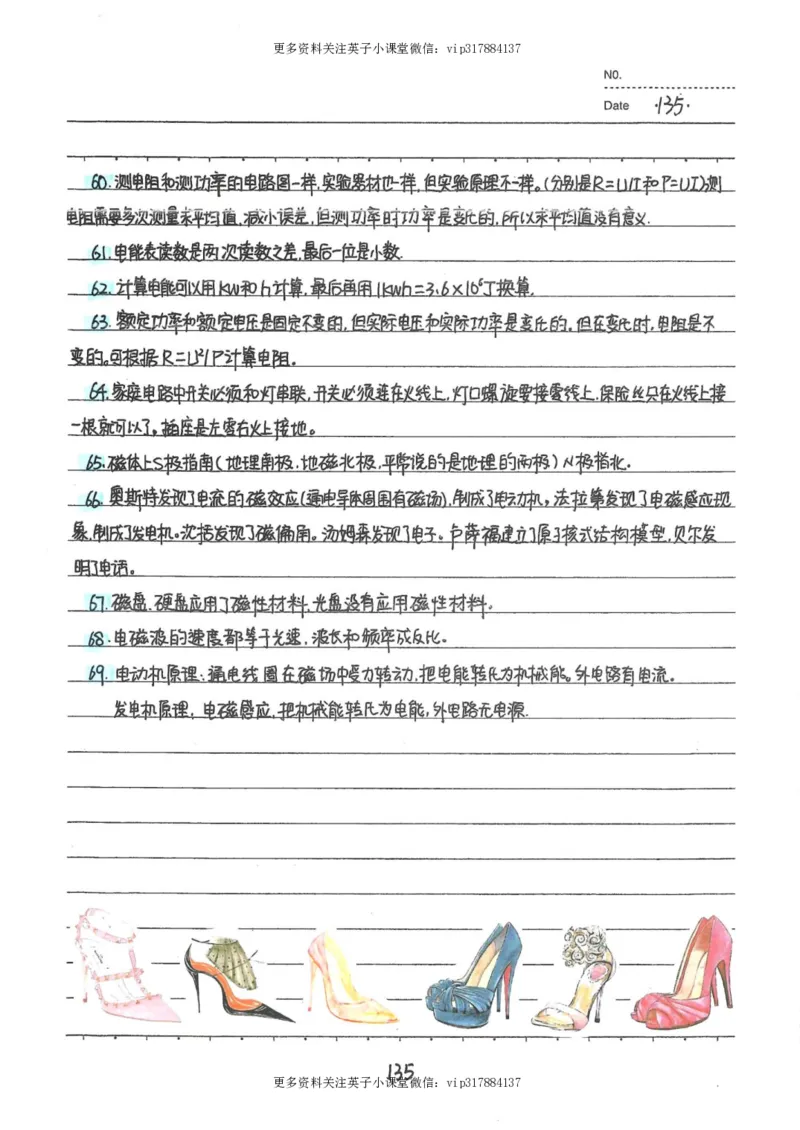 更多资料关注英子小课堂微信：vip317884137
NO.
Date ·135·
60.测电阻和测功率的电路图一样,实验器材也一样,但实验原理不一样。(分别是R=U/I和P=UI)测
电阻需要多次测量求平均值,减小误差,但测功率时功率是变化的,所以求平均值没有意义.
61.电能表读数是两次读数之差,最后一位是小数.
62.计算电能可以用KW和h计算,最后再用1KWh=3.6×10⁶J换算.
63.额定功率和额定电压是固定不变的,但实际电压和实际功率是变化的.但在变化时,电阻是不
变的。可根据R=U²/P计算电阻.
64.家庭电路中开关必须和灯串联,开关必须连在火线上,灯口螺旋要接零线上.保险丝只在火线上接
一根就可以了。插座是左零右火上接地。
65.磁体上S极指南(地理南极.地磁北极,平常说的是地理的两极)N极指北.
66.奥斯特发现了电流的磁效应(通电导体周围有磁场),制成了电动机,法拉第发现了电磁感应现
象,制成了发电机。沈括发现了磁偏角。汤姆森发现了电子。卢萨福建立了原子核式结构模型,贝尔发
明了电话。
67.磁盘.硬盘应用了磁性材料,光盘没有应用磁性材料。
68.电磁波的速度都等于光速,波长和频率成反比。
69.电动机原理:通电线圈在磁场中受力转动,把电能转化为机械能。外电路有电流。
发电机原理:电磁感应,把机械能转化为电能,外电路无电源.
135
更多资料关注英子小课堂微信：vip317884137